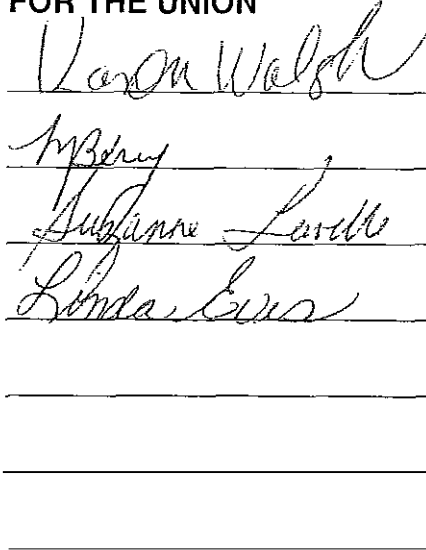 FOR THE UNION
Karen Walsh
MBerry
Suzanne Lavelle
Linda Eves